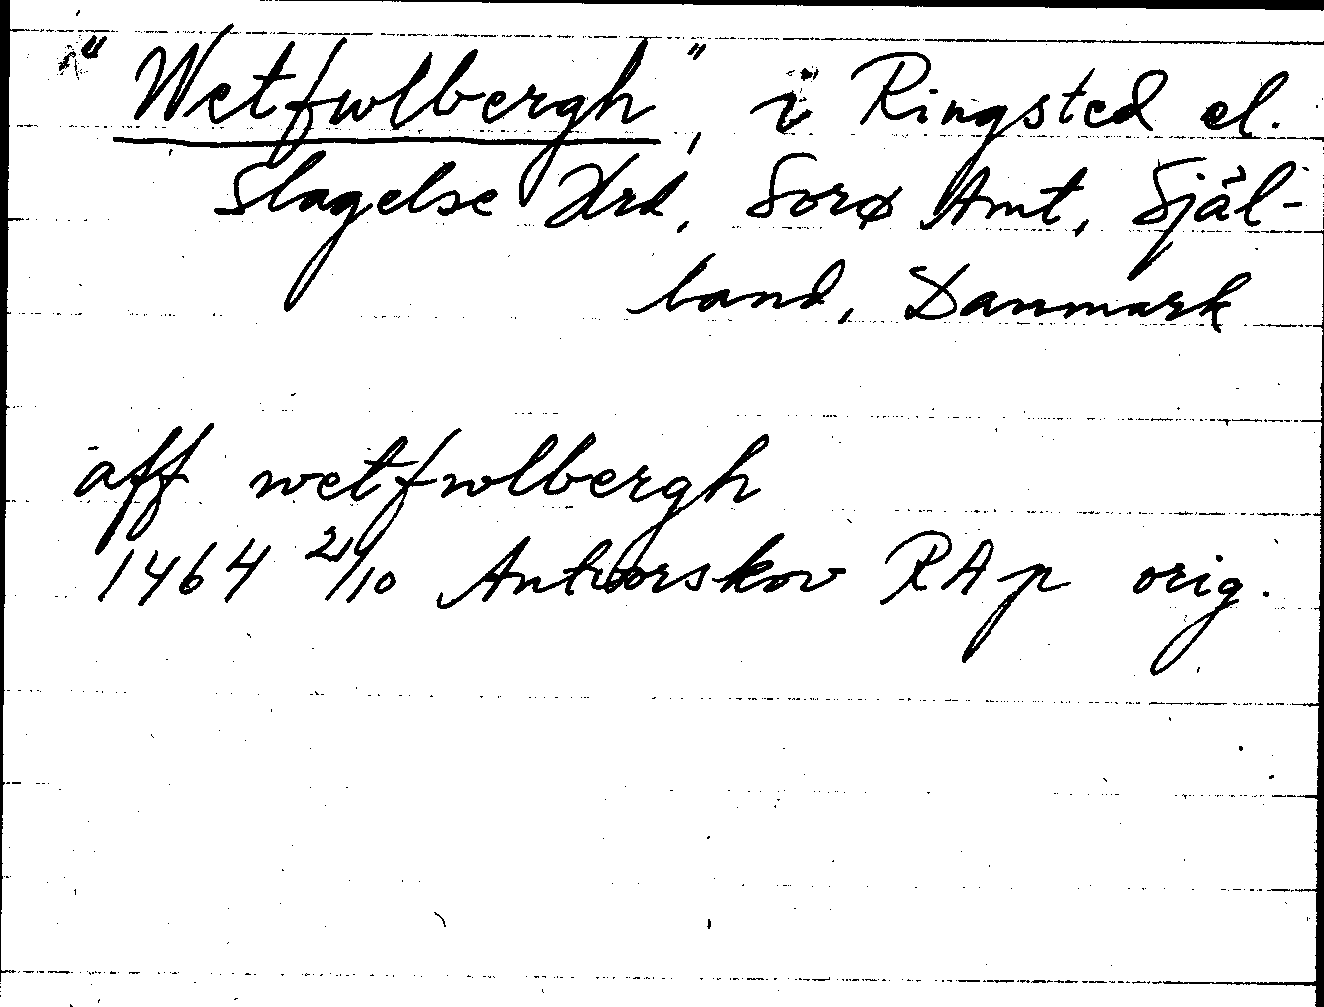 "Wetfwlbergh", i Ringsted el.
Slagelse Hrd, Sorø Amt, Själ-
land, Danmark
aff wetfwlbergh
1464 21/10 Antvorskov RAp orig.